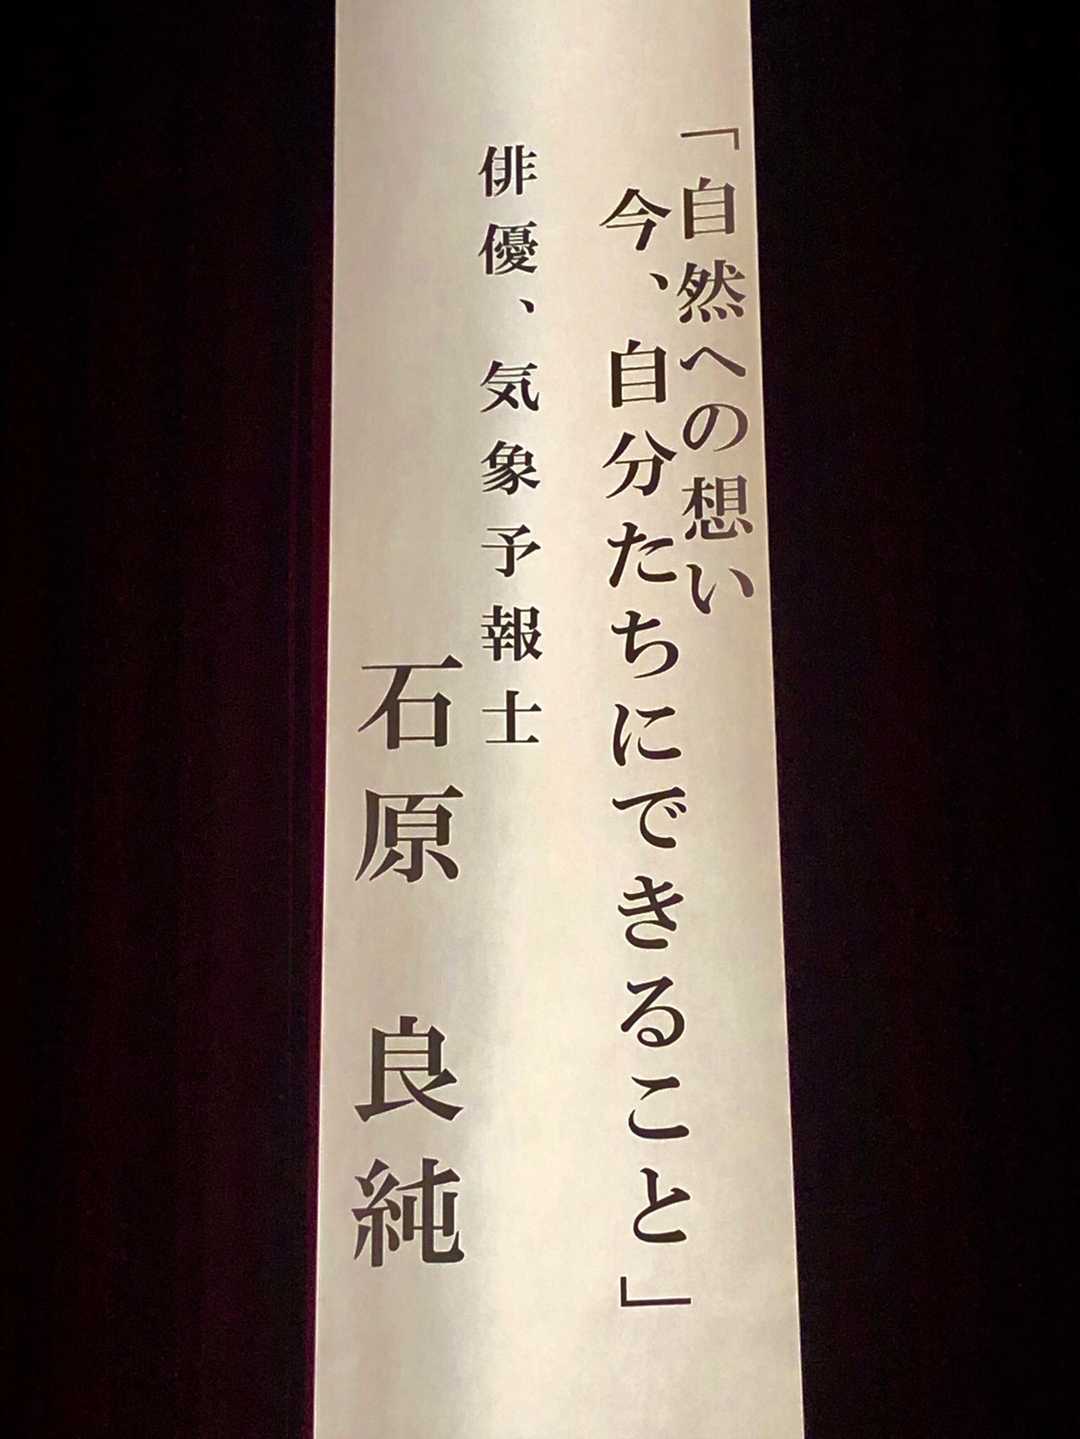 「自然への想い
今、自分たちにできること」
俳優、気象予報士
石原 良純